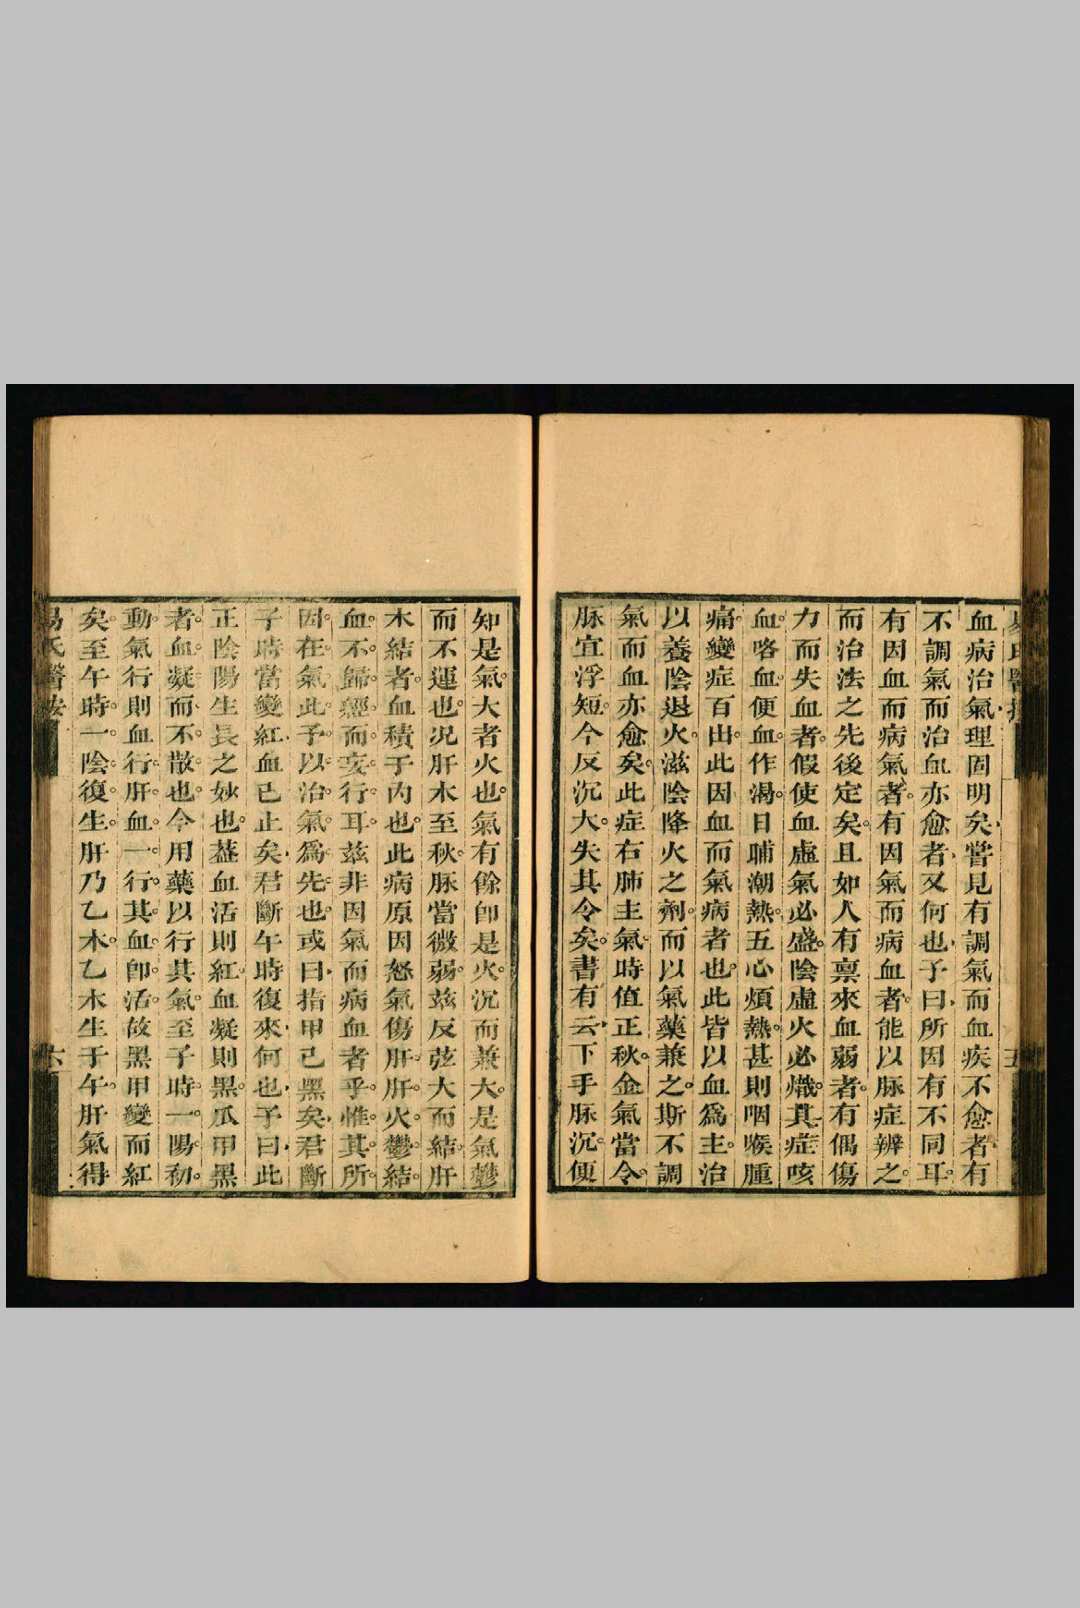 血病治氣理固明矣嘗見有調氣而血疾不愈者有
不調氣而治血亦愈者又何也予曰所因有不同耳
有因血而病氣者有因氣而病血者能以脉症辨之
而治法之先後定矣且如人有稟來血弱者有偶傷
力而失血者假使血虛氣必盛陰虛火必熾其症咳
血咯血便血作渴日晡潮熱五心煩熱甚則咽喉腫
痛變症百出此因血而氣病者也此皆以血爲主治
以養陰退火滋陰降火之劑而以氣藥兼之斯不調
氣而血亦愈矣此症右肺主氣時值正秋金氣當令
脉宜浮短今反沉大失其令矣書有云下手脉沉便
知是氣大者火也氣有餘卽是火沉而兼大是氣鬱
而不運也况肝木至秋脉當微弱茲反弦大而結肝
木結者血積于內也此病原因怒氣傷肝肝火鬱結
血不歸經而妄行耳茲非因氣而病血者乎惟其所
因在氣此予以治氣爲先也或曰指甲已黑矣君斷
子時當變紅血已止矣君斷午時復來何也予曰此
正陰陽生長之妙也葢血活則紅血凝則黑爪甲黑
者血凝而不散也今用藥以行其氣至子時一陽初
動氣行則血行肝血一行其血卽活故黑甲變而紅
矣至午時一陰復生肝乃乙木乙木生于午肝氣得
易氏醫按
六